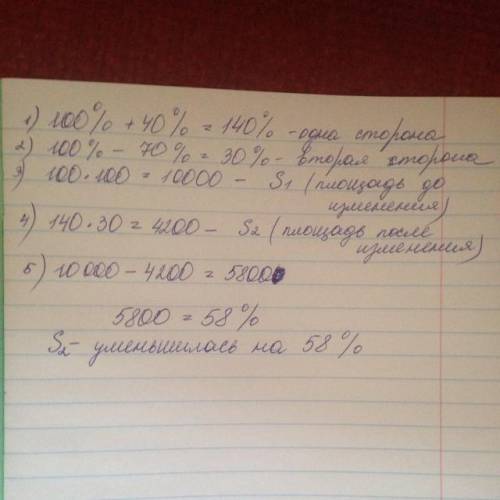 1) 100% + 40% = 140% - одна сторона
2) 100% - 70% = 30% - вторая сторона
3) 100 · 100 = 10000 - S1 (площадь до
изменения)
4) 140 · 30 = 4200 - S2 (площадь после
изменения)
5) 10000 - 4200 = 5800
5800 = 58%
S2 - уменьшилась на 58%